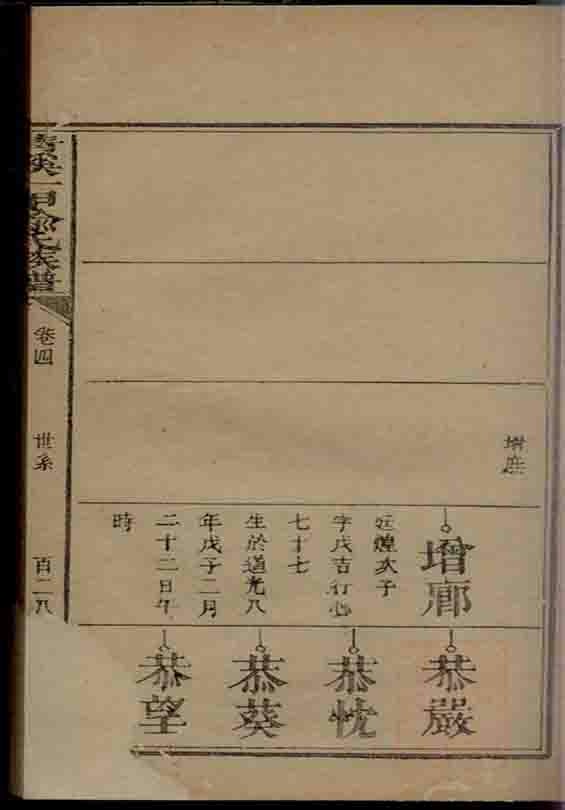 增庶
增廊
廷煌次子
字戊吉行
七十七
生於道光八
年戊子二月
二十二日午
時
恭嚴
恭忱
恭葵
恭望
氏家譜
卷四
世系
百二八